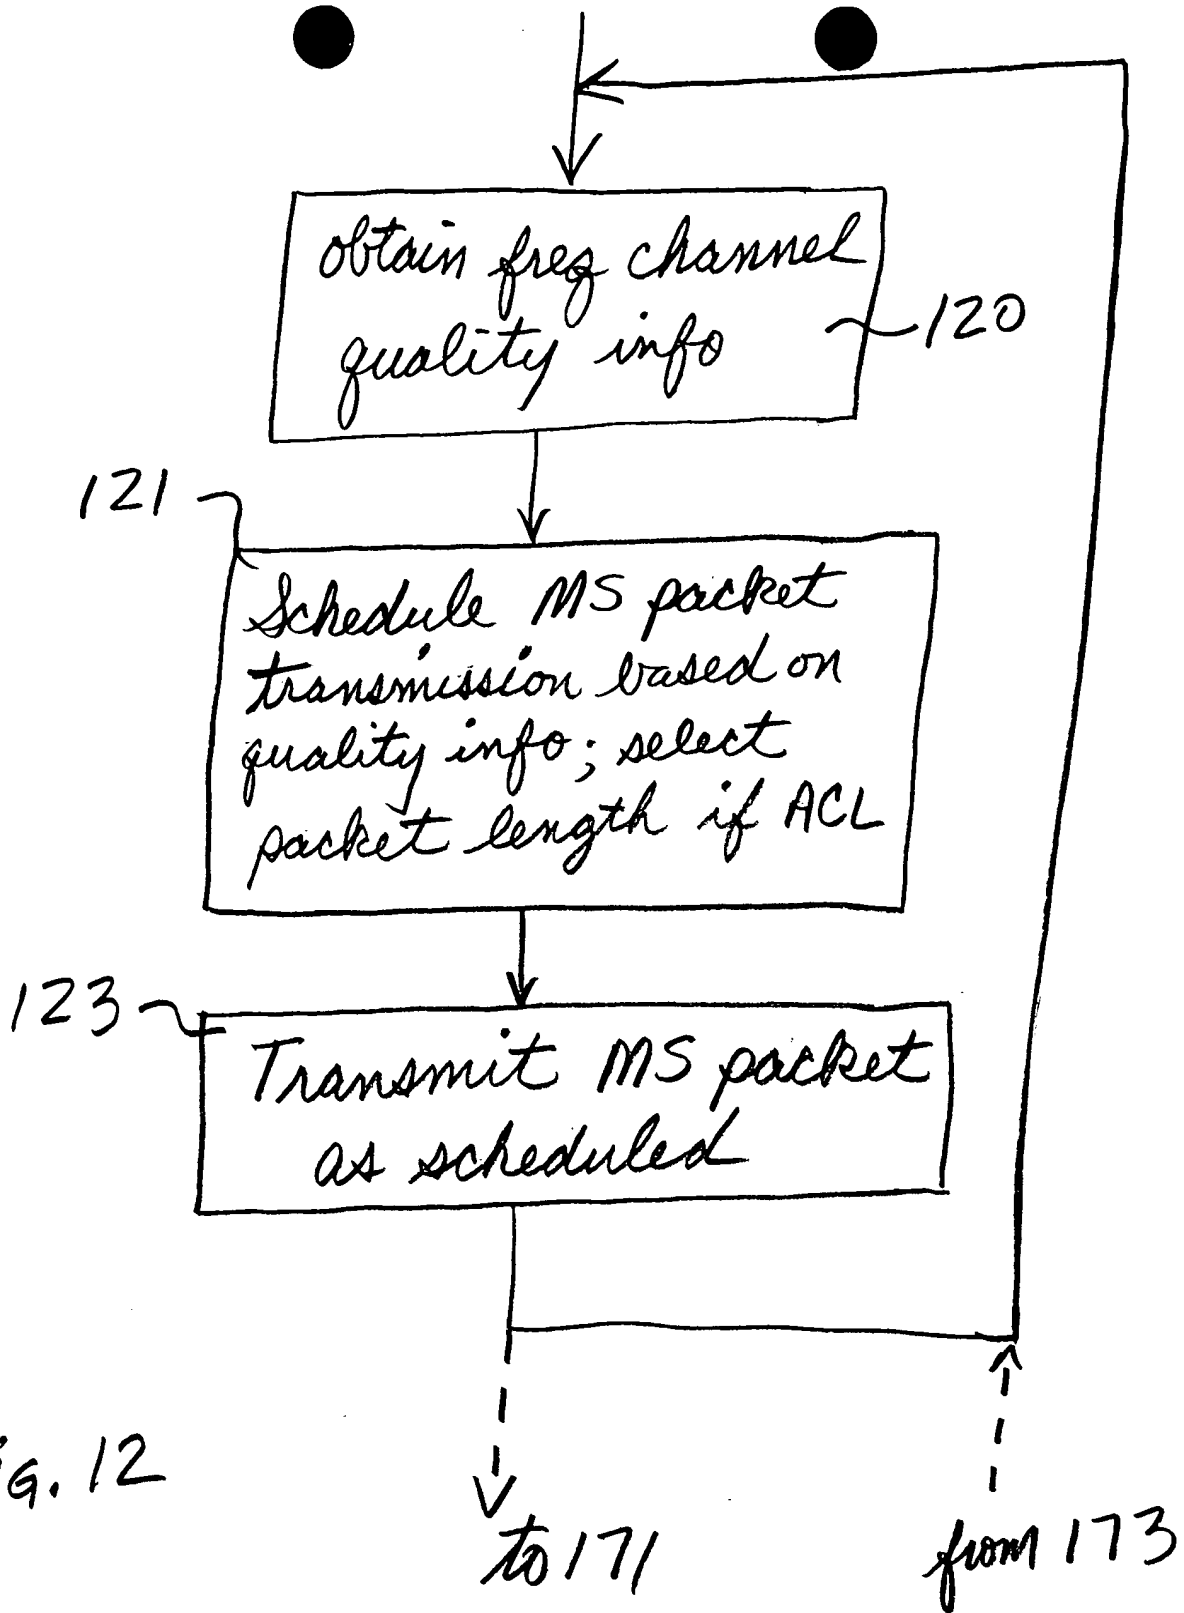 obtain freq channel
quality info
120
121
Schedule MS packet
transmission based on
quality info; select
packet length if ACL
123
Transmit MS packet
as scheduled
G. 12
to 171
from 173